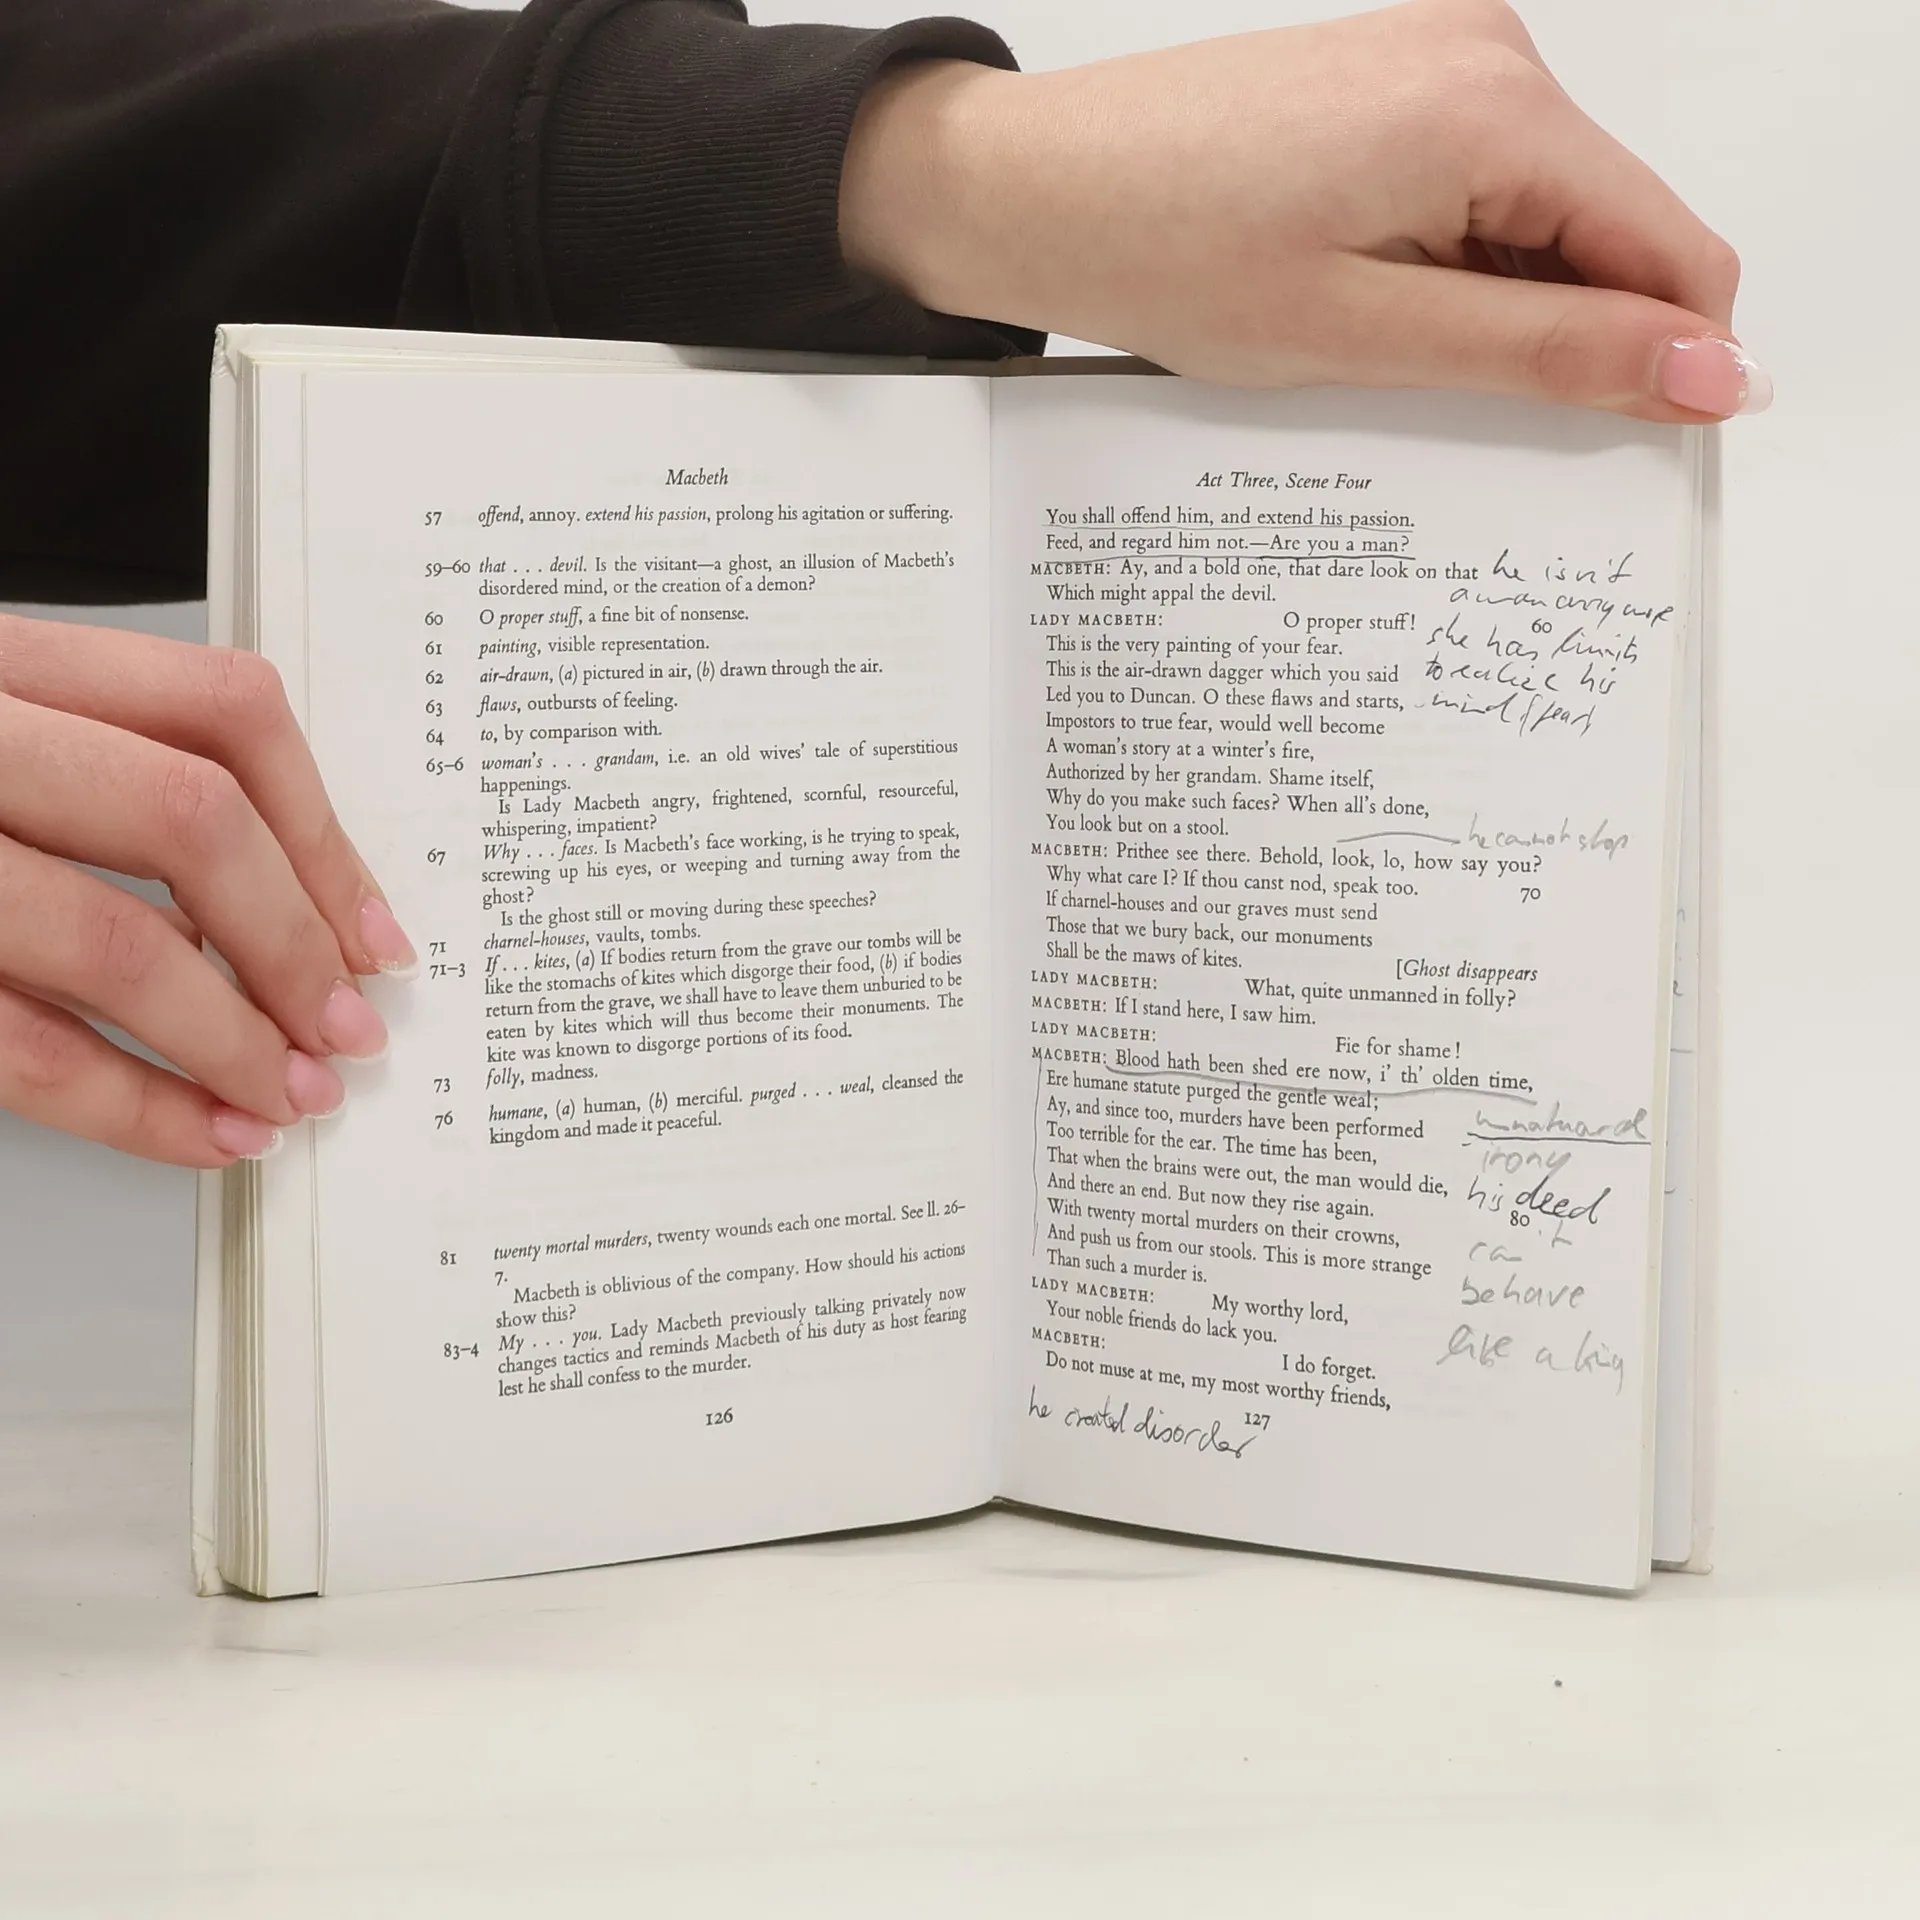 Macbeth
57 offend, annoy. extend his passion, prolong his agitation or suffering.
59–60 that . . . devil. Is the visitant—a ghost, an illusion of Macbeth's
disordered mind, or the creation of a demon?
60 O proper stuff, a fine bit of nonsense.
61 painting, visible representation.
62 air-drawn, (a) pictured in air, (b) drawn through the air.
63 flaws, outbursts of feeling.
64 to, by comparison with.
65–6 woman's . . . grandam, i.e. an old wives' tale of superstitious
happenings.
Is Lady Macbeth angry, frightened, scornful, resourceful,
whispering, impatient?
67 Why . . . faces. Is Macbeth's face working, is he trying to speak,
screwing up his eyes, or weeping and turning away from the
ghost?
Is the ghost still or moving during these speeches?
71 charnel-houses, vaults, tombs.
71–3 If . . . kites, (a) If bodies return from the grave our tombs will be
like the stomachs of kites which disgorge their food, (b) if bodies
return from the grave, we shall have to leave them unburied to be
eaten by kites which will thus become their monuments. The
kite was known to disgorge portions of its food.
73 folly, madness.
76 humane, (a) human, (b) merciful. purged . . . weal, cleansed the
kingdom and made it peaceful.
81 twenty mortal murders, twenty wounds each one mortal. See ll. 26–
7.
Macbeth is oblivious of the company. How should his actions
show this?
83–4 My . . . you. Lady Macbeth previously talking privately now
changes tactics and reminds Macbeth of his duty as host fearing
lest he shall confess to the murder.
126
Act Three, Scene Four
You shall offend him, and extend his passion.
Feed, and regard him not.—Are you a man?
MACBETH: Ay, and a bold one, that dare look on that he isn't
Which might appal the devil. a man any more
LADY MACBETH: O proper stuff! 60
This is the very painting of your fear. she has limits
This is the air-drawn dagger which you said to realize his
Led you to Duncan. O these flaws and starts, mind
Impostors to true fear, would well become
A woman's story at a winter's fire,
Authorized by her grandam. Shame itself,
Why do you make such faces? When all's done,
You look but on a stool. he cannot stop
MACBETH: Prithee see there. Behold, look, lo, how say you?
Why what care I? If thou canst nod, speak too. 70
If charnel-houses and our graves must send
Those that we bury back, our monuments
Shall be the maws of kites. [Ghost disappears
LADY MACBETH: What, quite unmanned in folly?
MACBETH: If I stand here, I saw him.
LADY MACBETH: Fie for shame!
MACBETH: Blood hath been shed ere now, i' th' olden time,
Ere humane statute purged the gentle weal;
Ay, and since too, murders have been performed
Too terrible for the ear. The time has been, irony
That when the brains were out, the man would die, his deed
And there an end. But now they rise again. 80
With twenty mortal murders on their crowns,
And push us from our stools. This is more strange
Than such a murder is. behave
LADY MACBETH: My worthy lord,
Your noble friends do lack you. like a king
MACBETH: I do forget.
Do not muse at me, my most worthy friends,
he created disorder
127